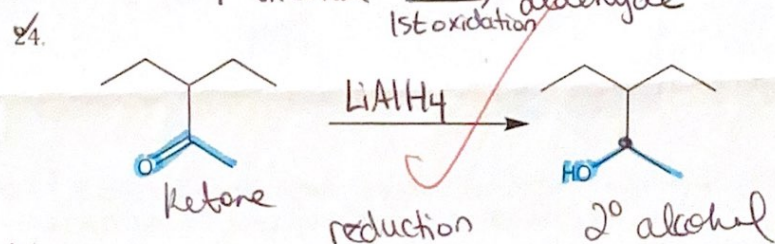 1st oxidation
24.
LiAlH4
O
HO
Ketone
reduction
2° alcohol